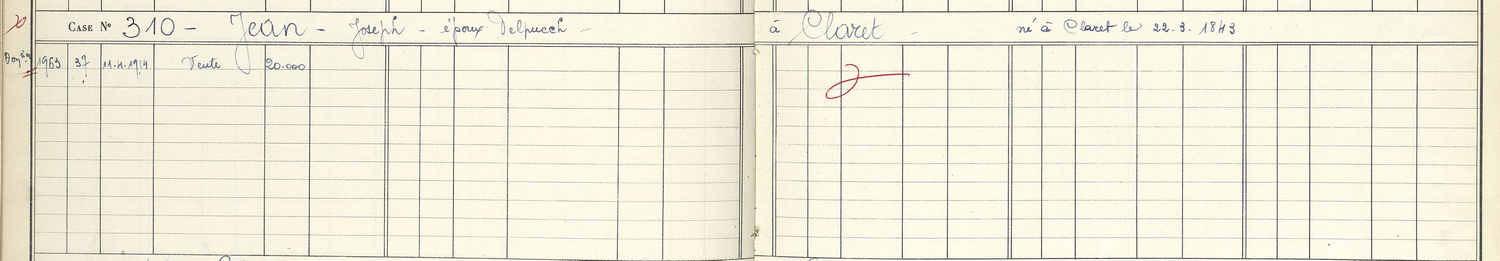 CASE Nº 310 - Jean - Joseph - époux Delpuech - à Claret - né à Claret le 22.3.1843
1963 37 11.4.1914 Vente 20.000